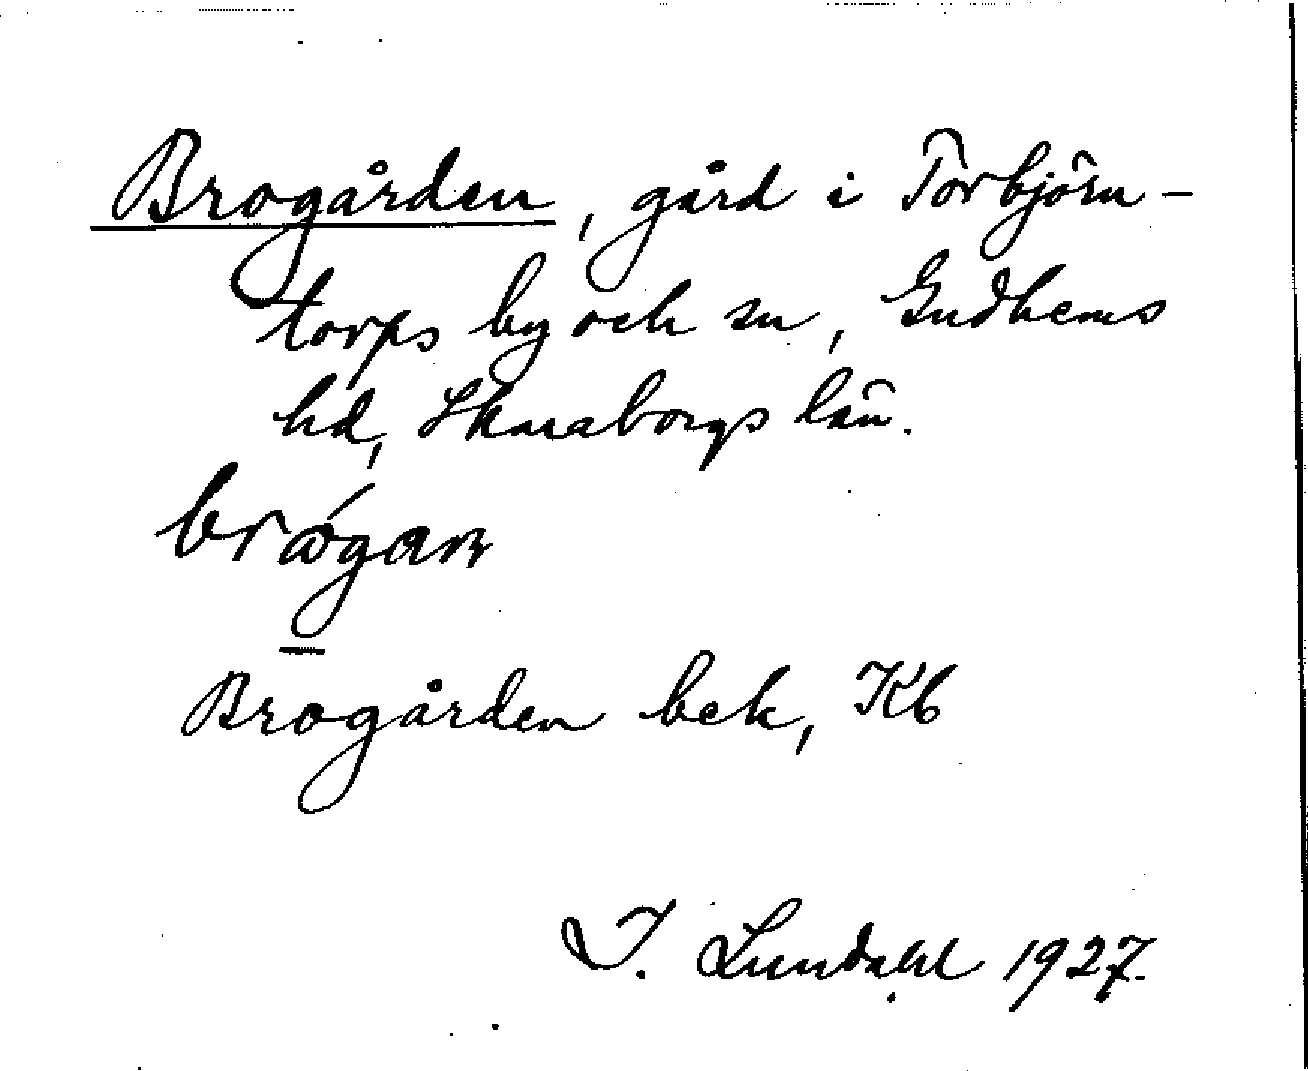 Brogården, gård i Torbjörn-
torps by och sn, Gudhems
hd, Skaraborgs län.
Brogården bek, Kb
I. Lundahl 1927.